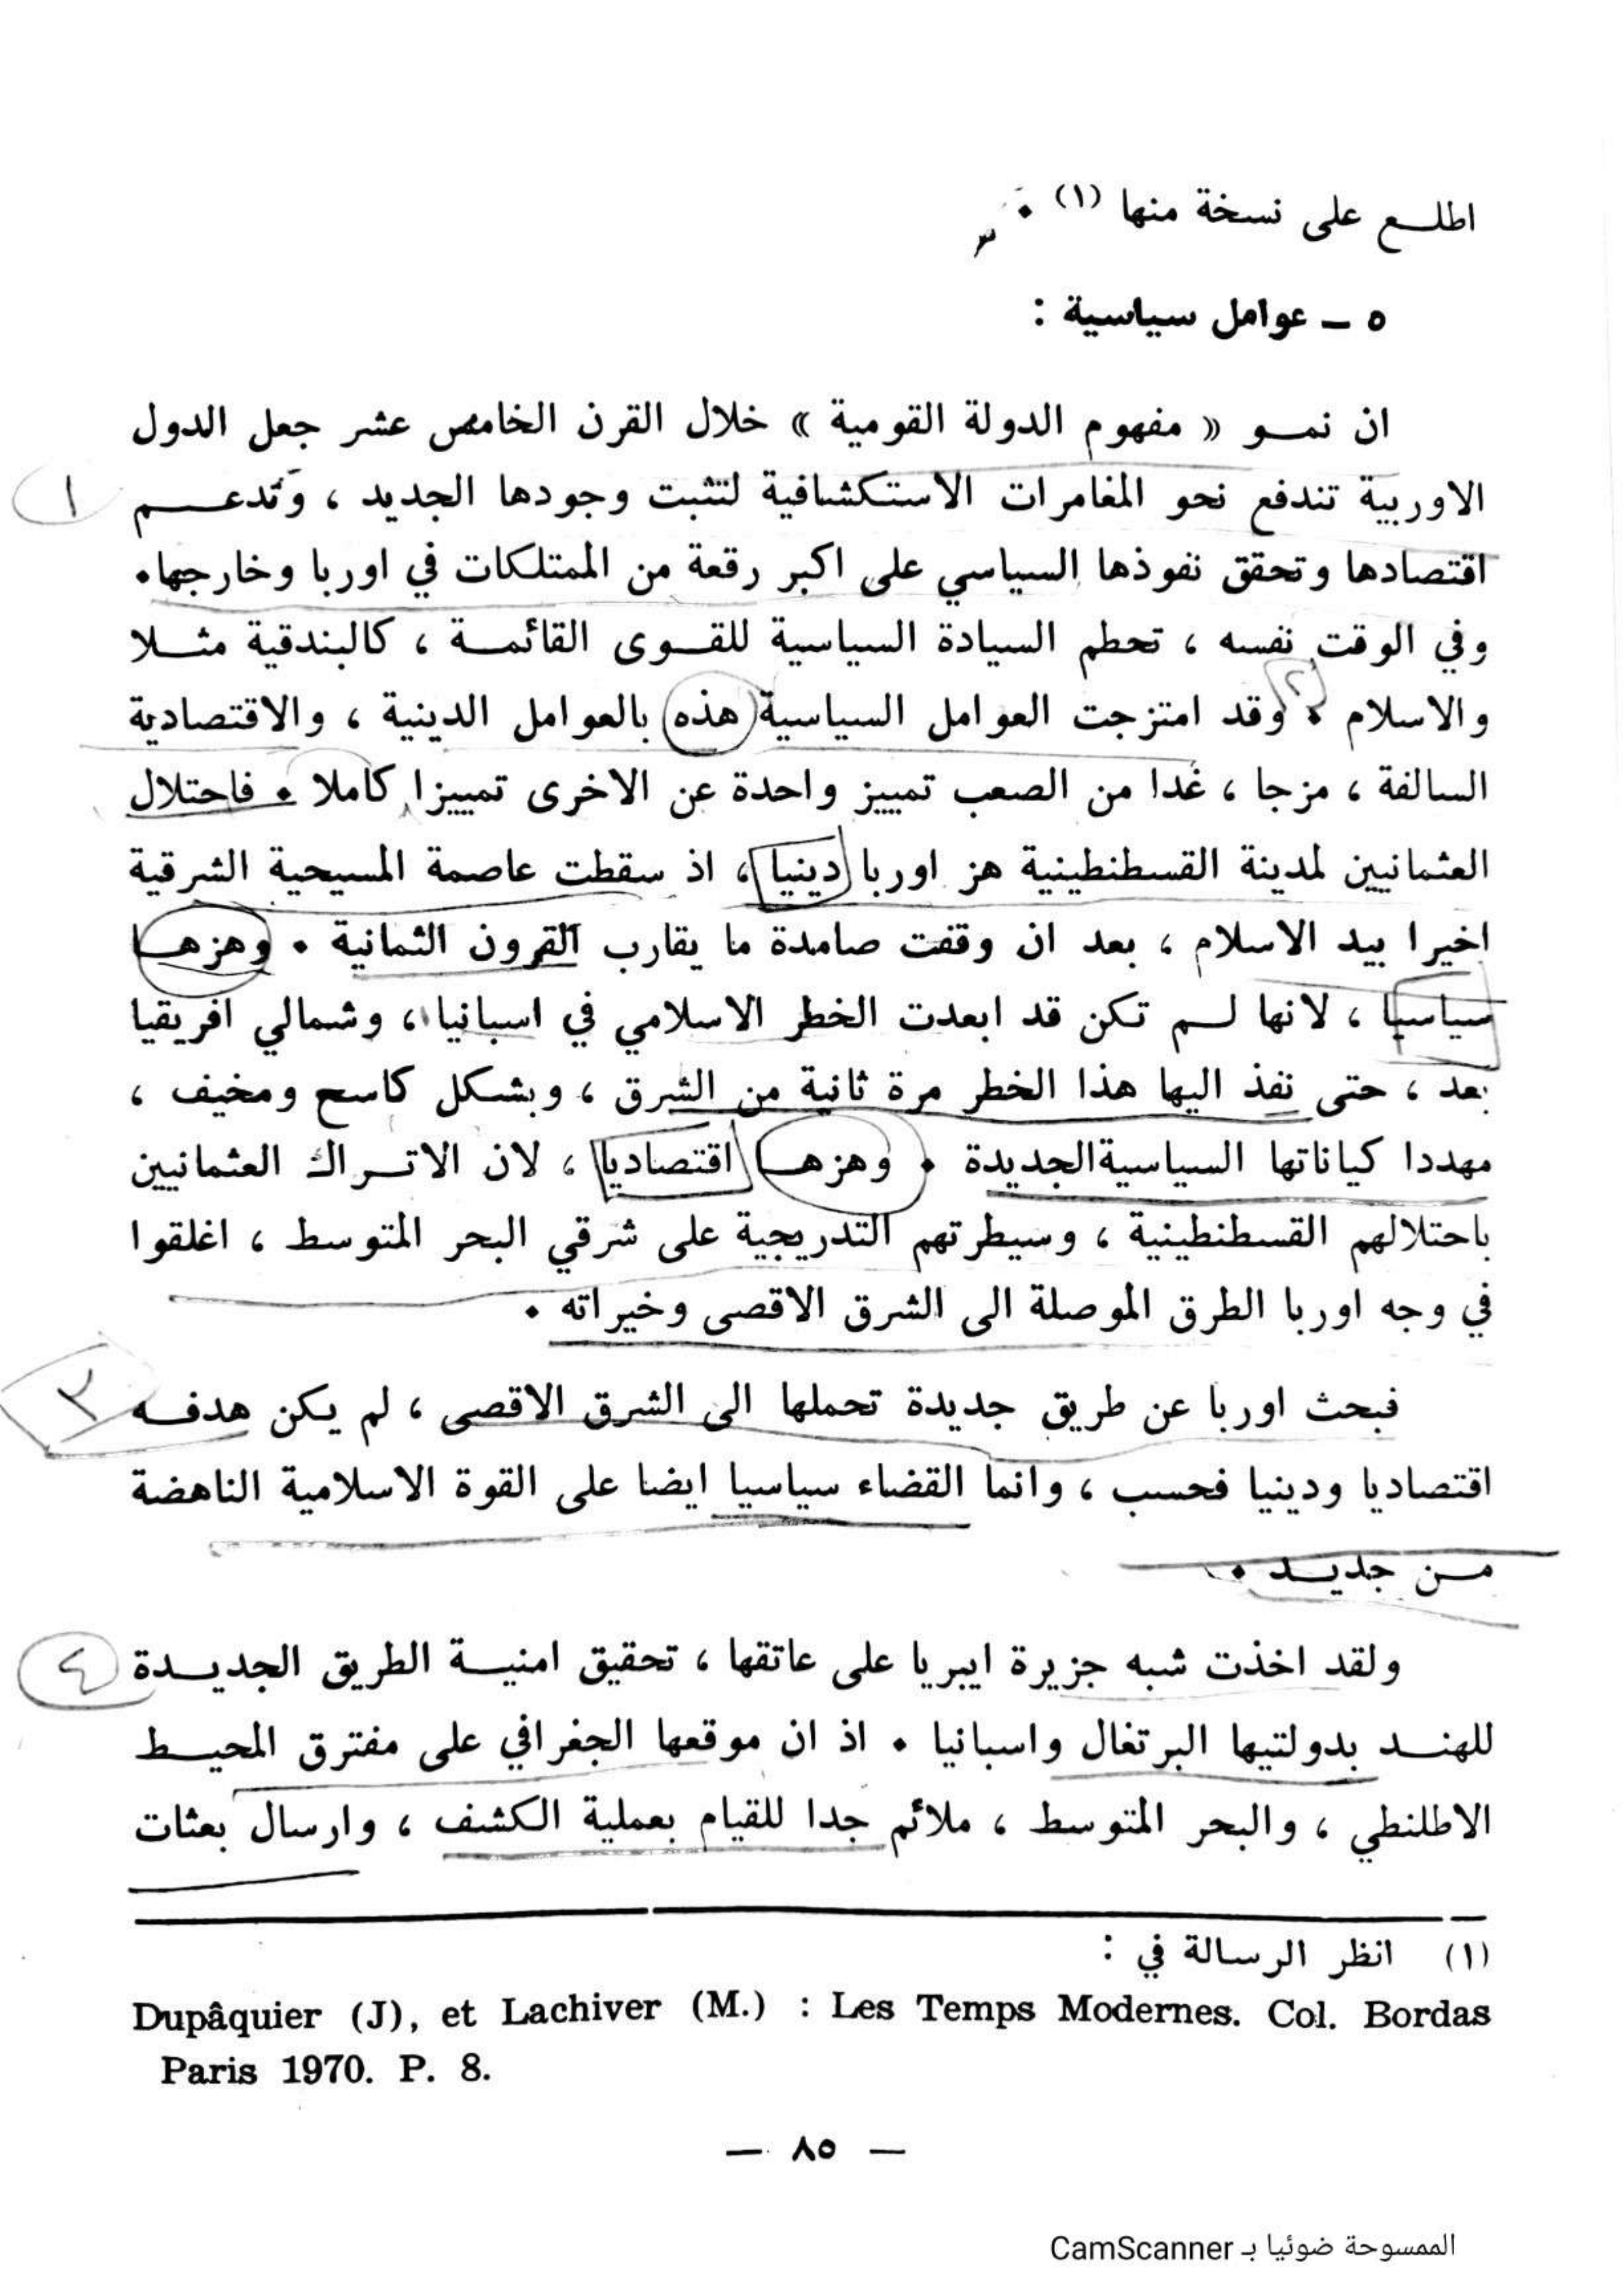 اطلع على نسخة منها (١) ٠
٥ ـ عوامل سياسية :
ان نمو « مفهوم الدولة القومية » خلال القرن الخامس عشر جعل الدول
١
الاوربية تندفع نحو المغامرات الاستكشافية لتثبت وجودها الجديد ، وتدعم
اقتصادها وتحقق نفوذها السياسي على اكبر رقعة من الممتلكات في اوربا وخارجها٠
وفي الوقت نفسه ، تحطم السيادة السياسية للقوى القائمة ، كالبندقية مثلا
٢
والاسلام ٠ وقد امتزجت العوامل السياسية هذه بالعوامل الدينية ، والاقتصادية
السالفة ، مزجا ، غدا من الصعب تمييز واحدة عن الاخرى تمييزا كاملا ٠ فاحتلال
العثمانيين لمدينة القسطنطينية هز اوربا دينيا ، اذ سقطت عاصمة المسيحية الشرقية
اخيرا بيد الاسلام ، بعد ان وقفت صامدة ما يقارب القرون الثمانية ٠ وهزها
سياسيا ، لانها لم تكن قد ابعدت الخطر الاسلامي في اسبانيا ، وشمالي افريقيا
بعد ، حتى نفذ اليها هذا الخطر مرة ثانية من الشرق ، وبشكل كاسح ومخيف ،
مهددا كياناتها السياسية الجديدة ٠ وهزها اقتصاديا ، لان الاتراك العثمانيين
باحتلالهم القسطنطينية ، وسيطرتهم التدريجية على شرقي البحر المتوسط ، اغلقوا
في وجه اوربا الطرق الموصلة الى الشرق الاقصى وخيراته ٠
٣
فبحث اوربا عن طريق جديدة تحملها الى الشرق الاقصى ، لم يكن هدفه
اقتصاديا ودينيا فحسب ، وانما القضاء سياسيا ايضا على القوة الاسلامية الناهضة
من جديد ٠
ولقد اخذت شبه جزيرة ايبريا على عاتقها ، تحقيق امنية الطريق الجديدة
٤
للهند بدولتيها البرتغال واسبانيا ٠ اذ ان موقعها الجغرافي على مفترق المحيط
الاطلنطي ، والبحر المتوسط ، ملائم جدا للقيام بعملية الكشف ، وارسال بعثات
(١) انظر الرسالة في :
Dupâquier (J), et Lachiver (M.) : Les Temps Modernes. Col. Bordas
Paris 1970. P. 8.
— ٨٥ —
الممسوحة ضوئيا بـ CamScanner